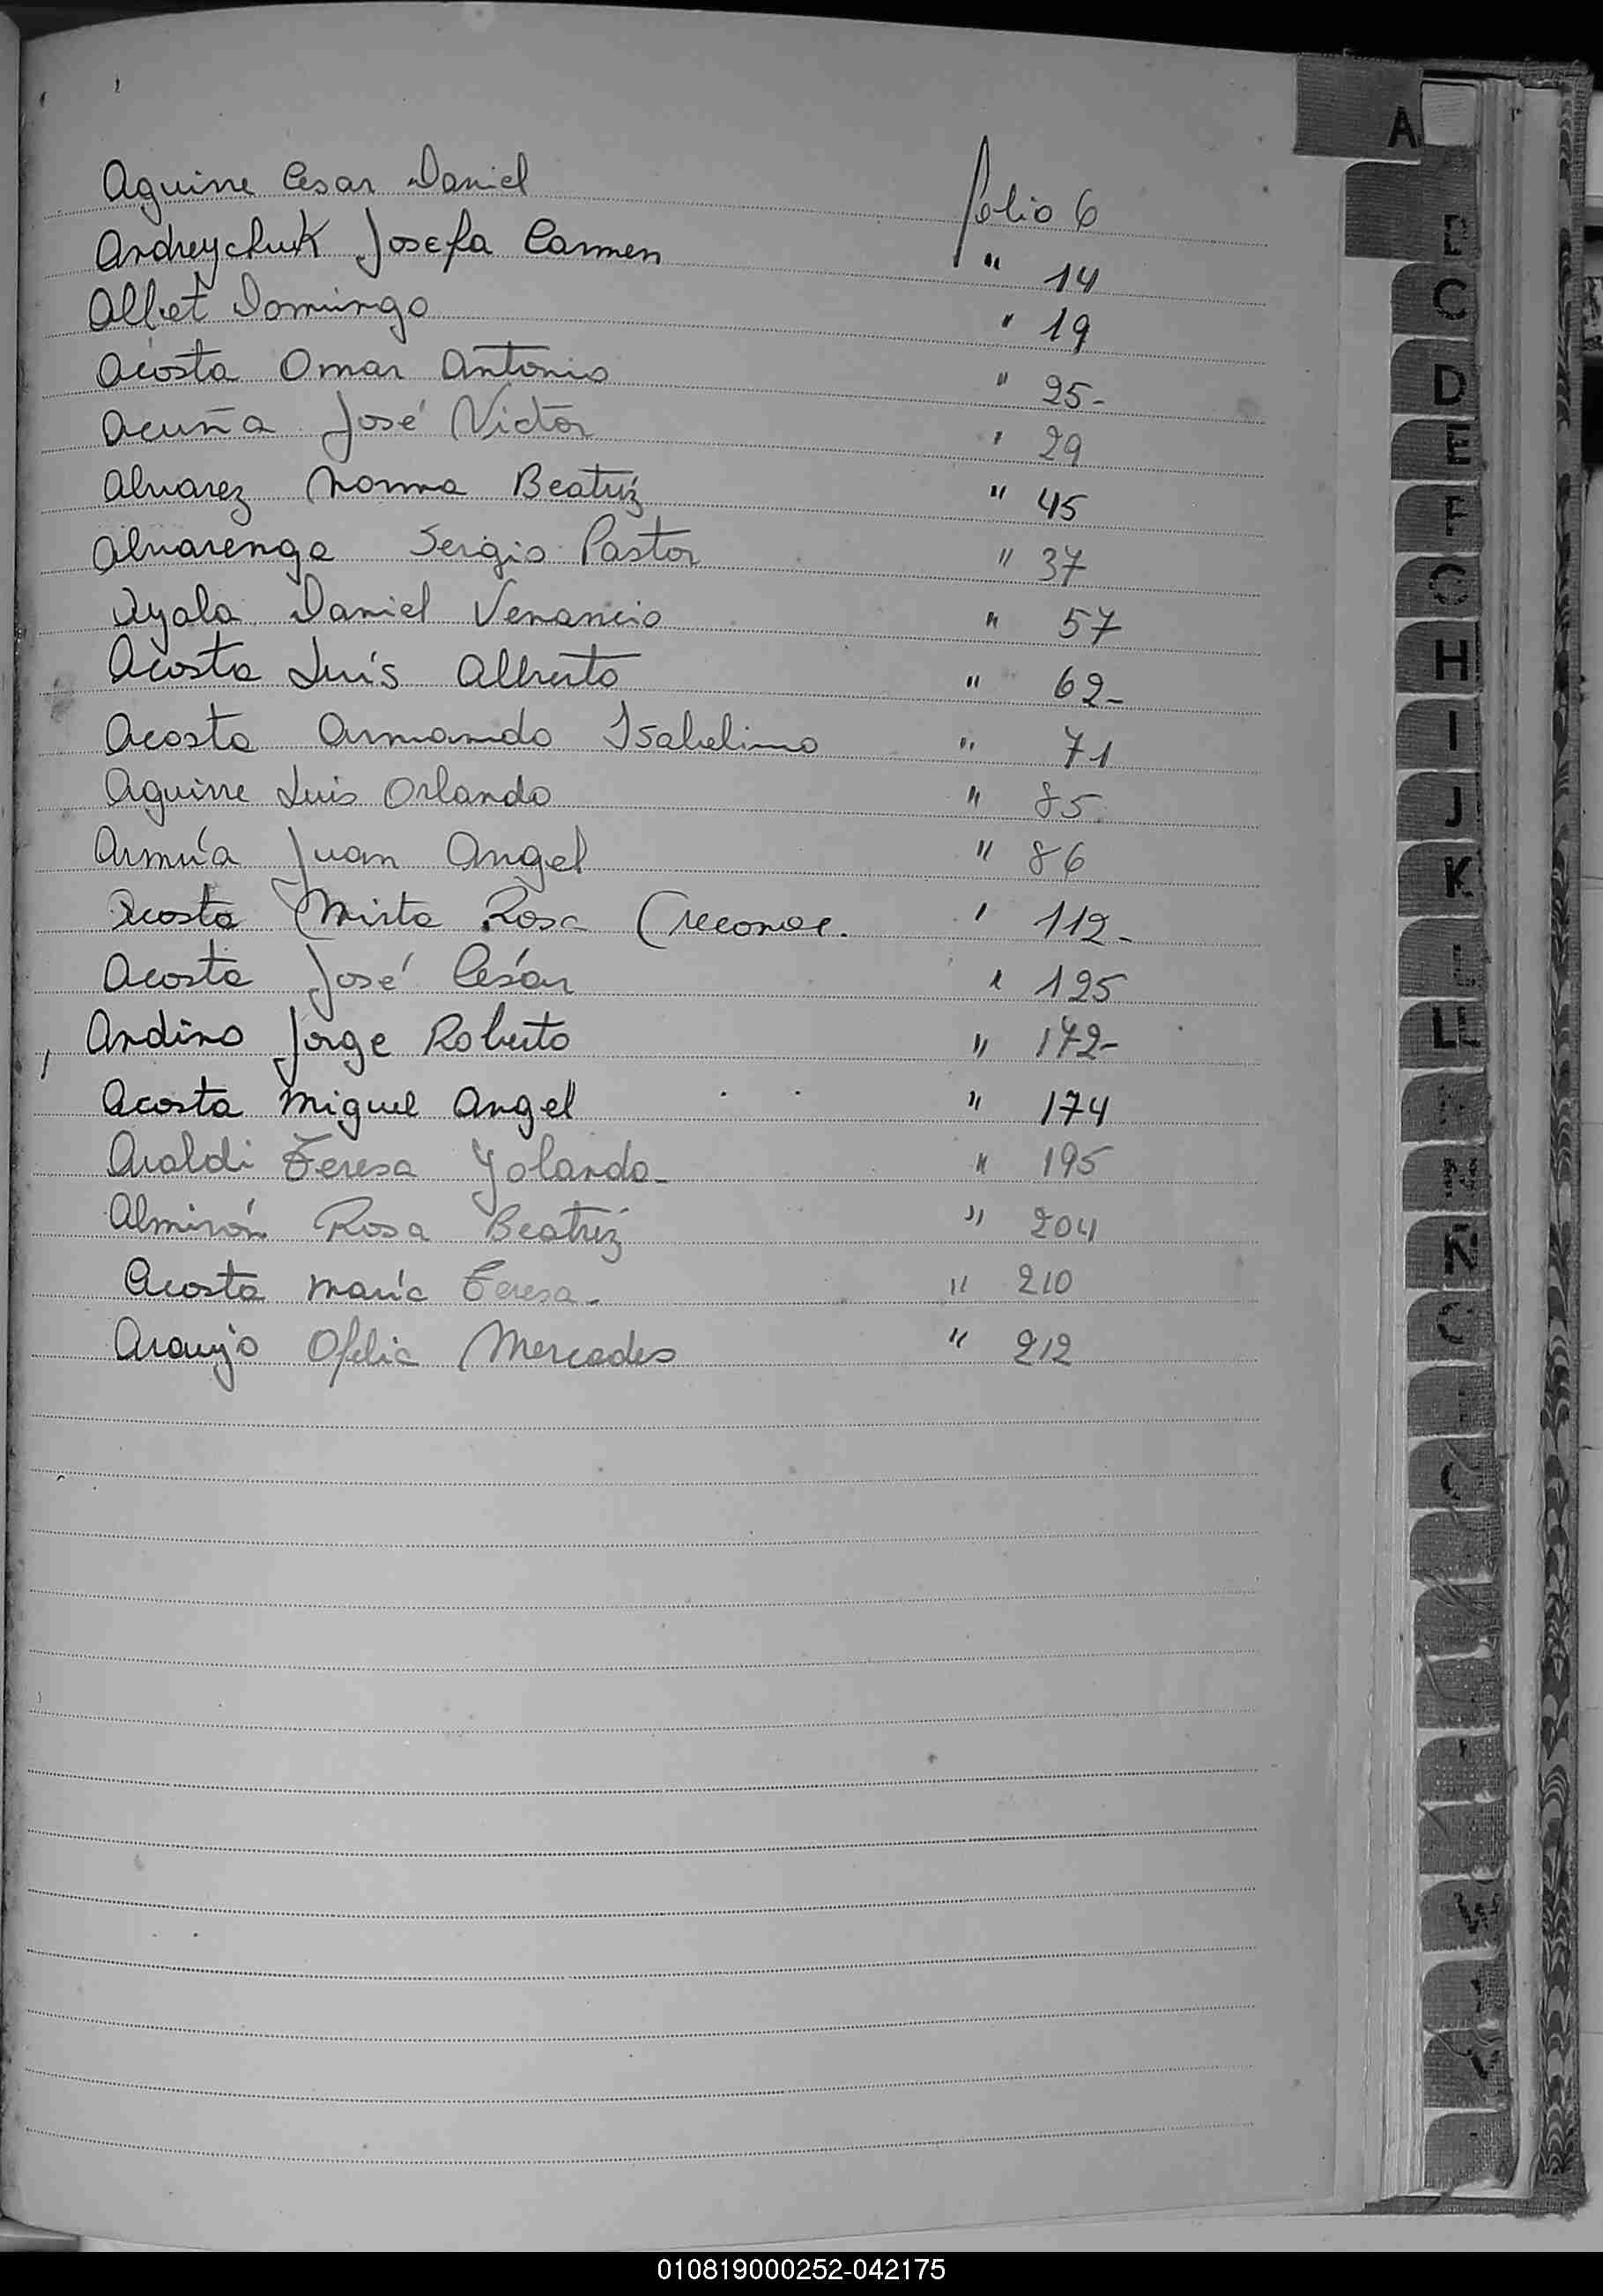 A
Aguirre Cesar Daniel folio 6
Andreychuk Josefa Carmen " 14
Albet Domingo " 19
Acosta Omar Antonio " 25-
Acuña José Victor " 29
Alvarez Norma Beatríz " 45
Alvarenga Sergio Pastor " 37
Ayala Daniel Venancio " 57
Acosta Luís Alberto " 62-
Acosta Armando Isabelino " 71
Aguirre Luis Orlando " 85.
Armúa Juan Angel " 86
Acosta Mirta Rosa (reconoc. " 112-
Acosta José César " 125
Andino Jorge Roberto " 172-
Acosta Miguel Angel " 174
Araldi Teresa Yolanda- " 195
Almirón Rosa Beatríz " 204
Acosta María Teresa- " 210
Araujo Ofelia Mercedes " 212
C
D
E
F
H
I
J
K
LL
Ñ
W
010819000252-042175